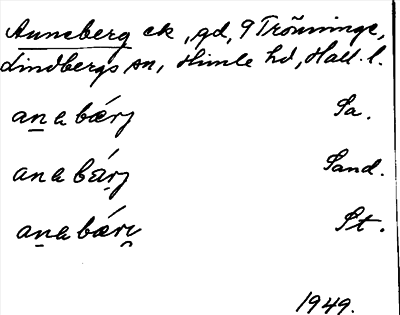 Anneberg ek, gd, 9 Trönninge,
Lindbergs sn, Himle hd, Hall. l.
a̲n a bǽrj Sa.
an a bǽrj Sand.
a̲n a bǽr St.
1949.